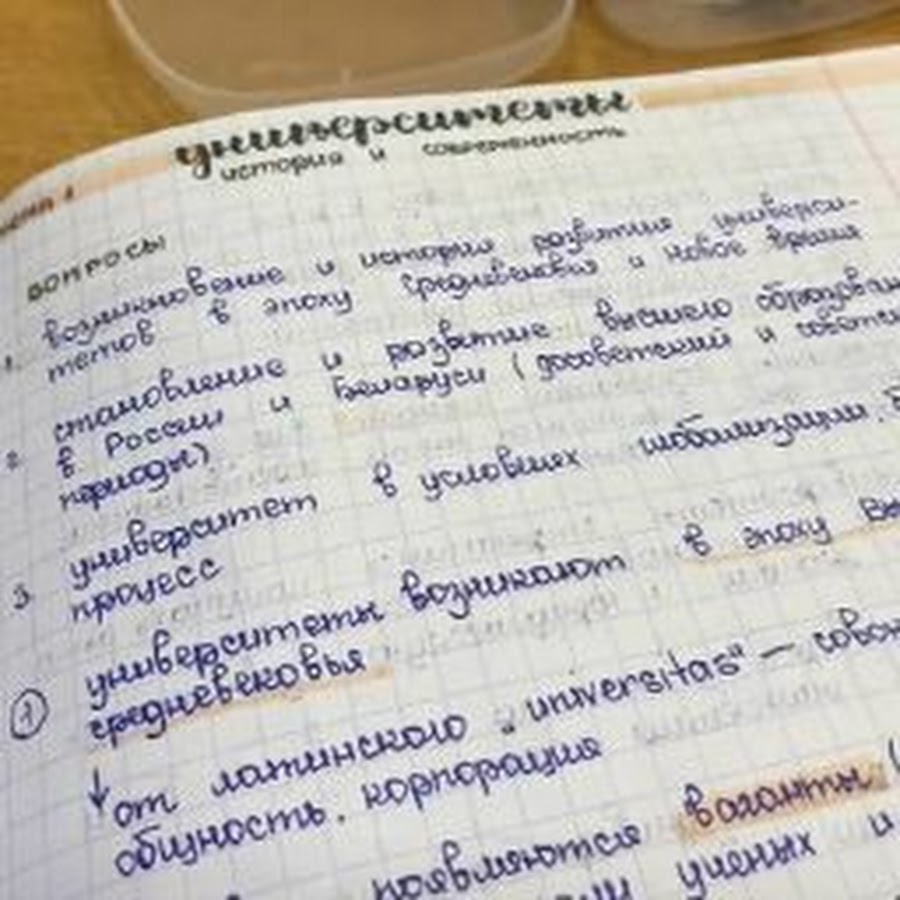 университеты
история и современность
вопросы
1. возникновение и история развития универси-
тетов в эпоху средневековья и новое время
2. становление и развитие высшего образован
в России и Беларуси (досоветский и советск
периоды)
3. университет в условиях глобализации. Б
процесс
① университеты возникают в эпоху Вы
средневековья
↓ от латинского „universitas" — совок
общность, корпорация
появляются ваганты (
ученых и